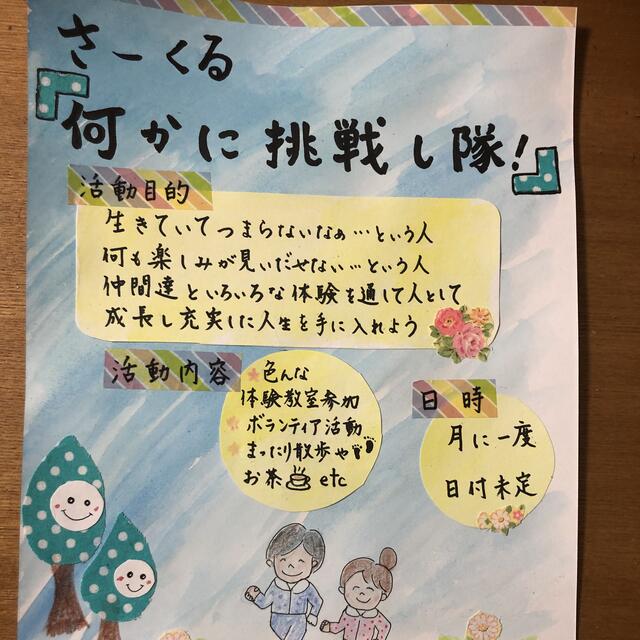 さーくる
『何かに挑戦し隊!』
活動目的
生きていてつまらないなぁ…という人
何も楽しみが見いだせない…という人
仲間達といろいろな体験を通して人として
成長し充実した人生を手に入れよう
活動内容
色んな
体験教室参加
ボランティア活動
まったり散歩や
お茶 etc
日時
月に一度
日付未定